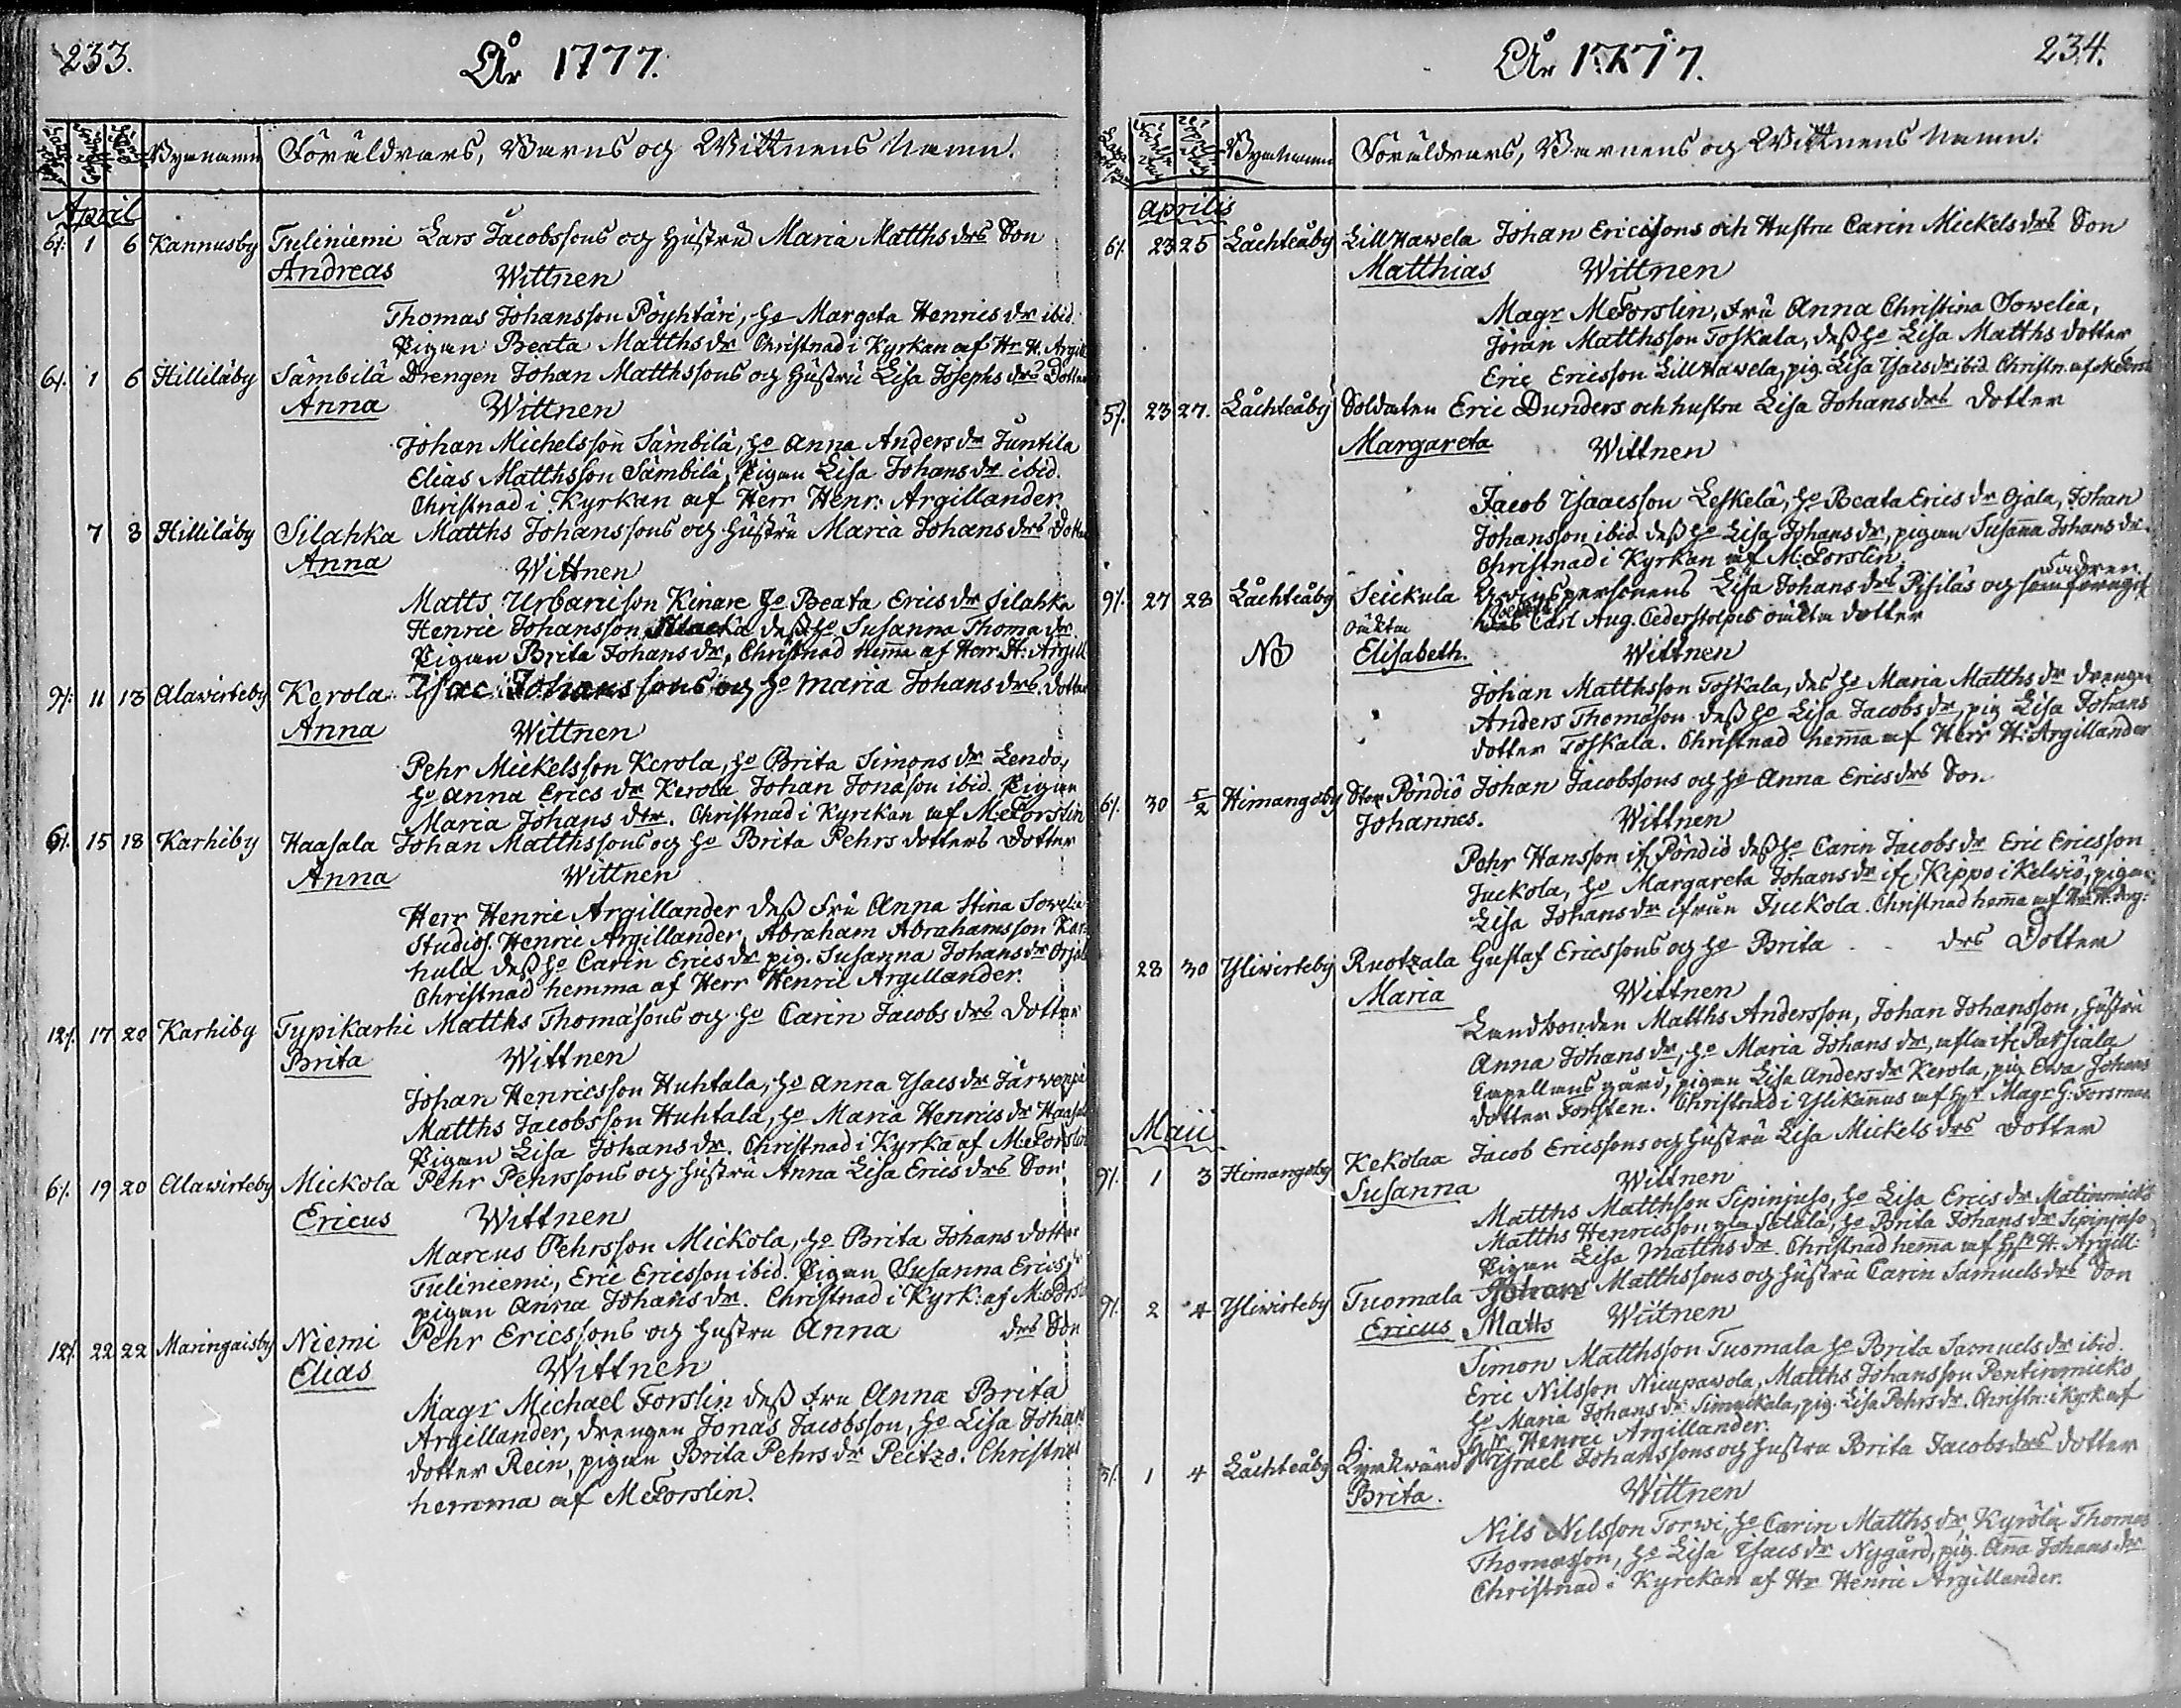 233.
År 1777.
Byanamn Föräldrars, Barns og Wittnens Namn.
April
6/. 1 6 Kannusby Tuliniemi Lars Jacobssons og hustru Maria Matths drs Son
Andreas Wittnen
Thomas Johansson Pöyhtäri, ho Margeta Henrics dr ibid.
Pigan Beata Matths dr Christnad i Kyrkan af Hr H. Argill
6/. 1 6 Hilliläby Sämbilä Drengen Johan Matthssons og hustru Lisa Josephs drs Dotter
Anna Wittnen
Johan Michelsson Sämbilä, ho Anna Anders dr Juntila
Elias Matthsson Sämbilä, Pigan Lisa Johans dr ibid.
Christnad i Kyrkan af Herr Henr: Argillander.
7 8 Hilliläby Silahka Matths Johanssons og hustru Maria Johans drs Dotter
Anna Wittnen
Matts Urbanison Kinare ho Beata Erics dr Silahka
Henric Johansson deß ho Susanna Thome dr
Pigan Brita Johans dr, Christnad hem̄a af Herr H: Argill
9/. 11 13 Alawirteby Kerola Isac Johanssons og ho Maria Johans drs dotter
Anna Wittnen
Pehr Mickelsson Kerola, ho Brita Simons dr Lendo,
ho Anna Erics dr Kerola Johan Jonason ibid. Pigan
Maria Johans dtr. Christnad i Kyrckan af M:Forslin
6/. 15 18 Karhiby Haasala Johan Matthssons og ho Brita Pehrs dotters Dotter
Anna Wittnen
Herr Henric Argillander deß Fru Anna Stina Sowelia
Studios. Henric Argillander, Abraham Abrahamsson Kar-
hula deß ho Carin Erics dr pig. Susanna Johans dr
Christnad hemma af Herr Henric Argillander.
12/. 17 20 Karhiby Typikarhi Matths Thomasons og ho Carin Jacobs drs Dotter
Brita Wittnen
Johan Henricsson Huhtala, ho Anna Isacs dr Järwenpä
Matths Jacobsson Huhtala, ho Maria Henrics dr Haasal
Pigan Lisa Johans dr. Christnad i Kyrka af M:Forslin
6/. 19 20 Alawirteby Mickola Pehr Pehrssons og hustru Anna Lisa Erics drs Son
Ericus Wittnen
Marcus Pehrsson Mickola, ho Brita Johans dotter
Tuliniemi, Eric Ericsson ibid. Pigan Susanna Erics dr
pigan Anna Johans dr. Christnad i Kyrk: af M:Forsl
12/. 22 22 Maringaisby Niemi Pehr Ericssons og hustru Anna drs Son
Elias Wittnen
Magr Michael Forslin deß Fru Anna Brita
Argillander, drengen Jonas Jacobsson, ho Lisa Johans
dotter Rein, pigan Brita Pehrs dr Peitzo. Christnad
hemma af M:Forslin.
År 1777.
234.
Byanamn Föräldrars, Barnens og Wittnens Namn.
Aprilis
6/. 23 25 Låchteåby Lill Hawela Johan Ericssons och Hustru Carin Mickels drs Son
Matthias Wittnen
Magr M:Forslin, Fru Anna Christina Sowelia,
Jöran Matthsson Toskala, deß ho Lisa Matths dotter
Eric Ericsson Lill Hawela, pig. Lisa Isacs dr ibid. Christn. af M:Forsl
5/. 23 27. Låchteåby Soldaten Eric Dunders och hustru Lisa Johans drs Dotter
Margareta Wittnen
Jacob Isaacsson Leskelä, ho Beata Erics dr Ojala, Johan
Johansson ibid deß ho Lisa Johans dr, pigan Susan̄a Johans dr.
Christnad i Kyrkan af M:Forslin.
9/. 27 28 Låchteåby Seickula Qwinspersonens Lisa Johans drs Pisiläs og som föregifs Fadren
oäkta Carl Aug. Cederstolpes oäkta dotter
NB Elisabeth. Wittnen
Johan Matthsson Toskala, des ho Maria Matths dr drengen
Anders Thomason deß ho Lisa Jacobs dr, pig Lisa Johans
dotter Toskala. Christnad hem̄a af Herr H: Argillander
6/. 30 5/2 Himangeby Stor Pöndiö Johan Jacobssons og ho Anna Erics drs Son
Johannes. Wittnen
Pehr Hansson if. Pöndiö deß ho Carin Jacobs dr Eric Ericsson
Juckola, ho Margareta Johans dr if. Kippo i Kelwiö, pigan
Lisa Johans dr ifrån Juckola. Christnad hem̄a af Hr H. Arg:
28 30 Yliwirteby Ruotzala Gustaf Ericssons og ho Brita - - drs Dotter
Maria Wittnen
Landbonden Matths Andersson, Johan Johansson, hustru
Anna Johans dr, ho Maria Johans dr, Patsiala
Capellans gård, pigan Lisa Anders dr Kerola, pig Ewa Johans
dotter Forsten. Christnad i Ylikannus af Hr Magr G: Forsman
Maii
9/. 1 3 Himangeby Kekolax Jacob Ericssons og hustru Lisa Mickels drs Dotter
Susanna Wittnen
Matths Matthson Sipinjuso, ho Lisa Erics dr Matinmicki
Matths Henricsson Setälä, ho Brita Johans dr Sipinjuso
Pigan Lisa Matths dr. Christnad hem̄a af Hr H. Argill.
9/. 2 4 Yliwirteby Tuomala Johans Matthssons og hustru Carin Samuels drs Son
Ericus Matts Wittnen
Simon Matthsson Tuomala ho Brita Samuels dr ibid.
Eric Nilsson Nicupawola, Matths Johansson Pentinmicko
ho Maria Johans dr Simuckala, pig. Lisa Pehrs dr. Christn: i Kyrk. af
Hr Henric Argillander.
3/. 1 4 Låchteåby Israel Johanssons og hustru Brita Jacobs drs dotter
Brita. Wittnen
Nils Nilsson Torwi, ho Carin Matths dr, Kyrölä Thomas
Thomasson, ho Lisa Isacs dr Nygård, pig. An̄a Johans dr
Christnad i Kyrckan af Hr Henric Argillander.